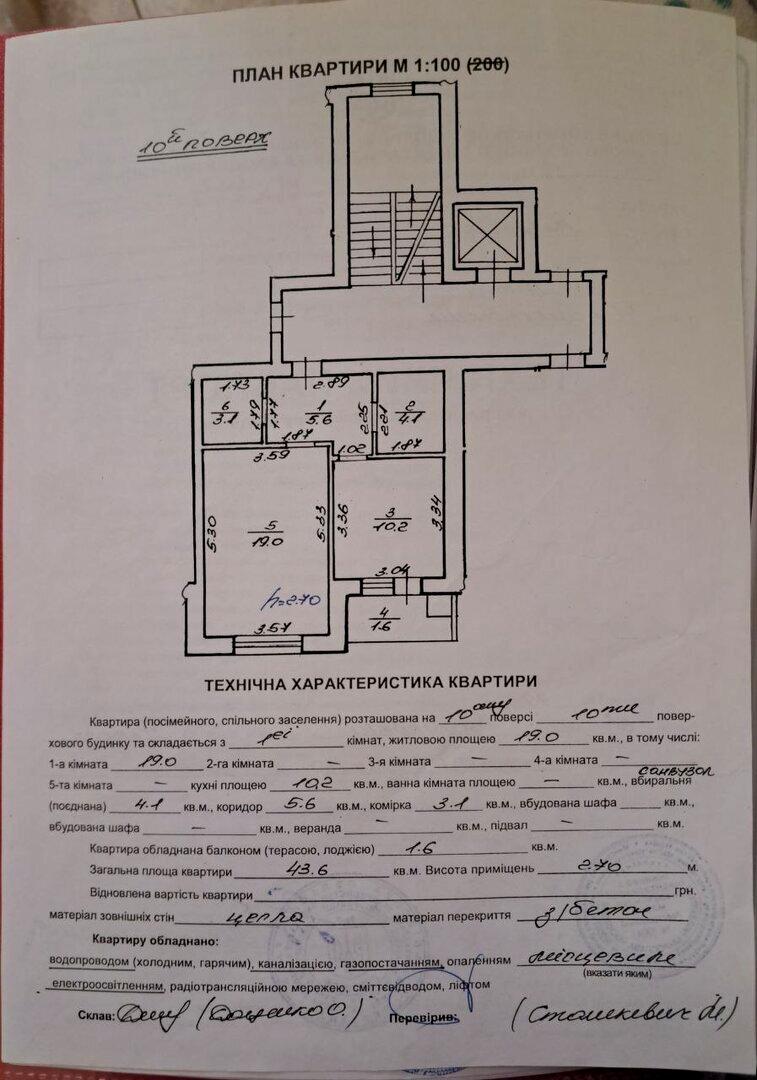 ПЛАН КВАРТИРИ М 1:100 (200)
10й ПОВЕРХ
1.73
2.89
6
3.1
1.79
1.77
1
5.6
2.25
2.21
2
4.1
1.87
1.02
1.87
3.59
5.30
5
19.0
5.33
3.36
3
10.2
3.34
h=2.70
3.04
3.57
4
1.6
ТЕХНІЧНА ХАРАКТЕРИСТИКА КВАРТИРИ
Квартира (посімейного, спільного заселення) розташована на 10ому поверсі 10ти повер-
хового будинку та складається з 1єї кімнат, житловою площею 19.0 кв.м., в тому числі:
1-а кімната 19.0 2-га кімната – 3-я кімната – 4-а кімната –
санвузол
5-та кімната – кухні площею 10,2 кв.м., ванна кімната площею – кв.м., вбиральня
(поєднана) 4.1 кв.м., коридор 5.6 кв.м., комірка 3.1 кв.м., вбудована шафа кв.м.,
вбудована шафа – кв.м., веранда – кв.м., підвал – кв.м.
Квартира обладнана балконом (терасою, лоджією) 1.6 кв.м.
Загальна площа квартири 43.6 кв.м. Висота приміщень 2.70 м.
Відновлена вартість квартири грн.
матеріал зовнішніх стін цегла матеріал перекриття з/бетон
Квартиру обладнано:
водопроводом (холодним, гарячим), каналізацією, газопостачанням, опаленням місцевим
(вказати яким)
електроосвітленням, радіотрансляційною мережею, сміттєвідводом, ліфтом
Склав: (Доценко О.) Перевірив: (Сташкевич М.)